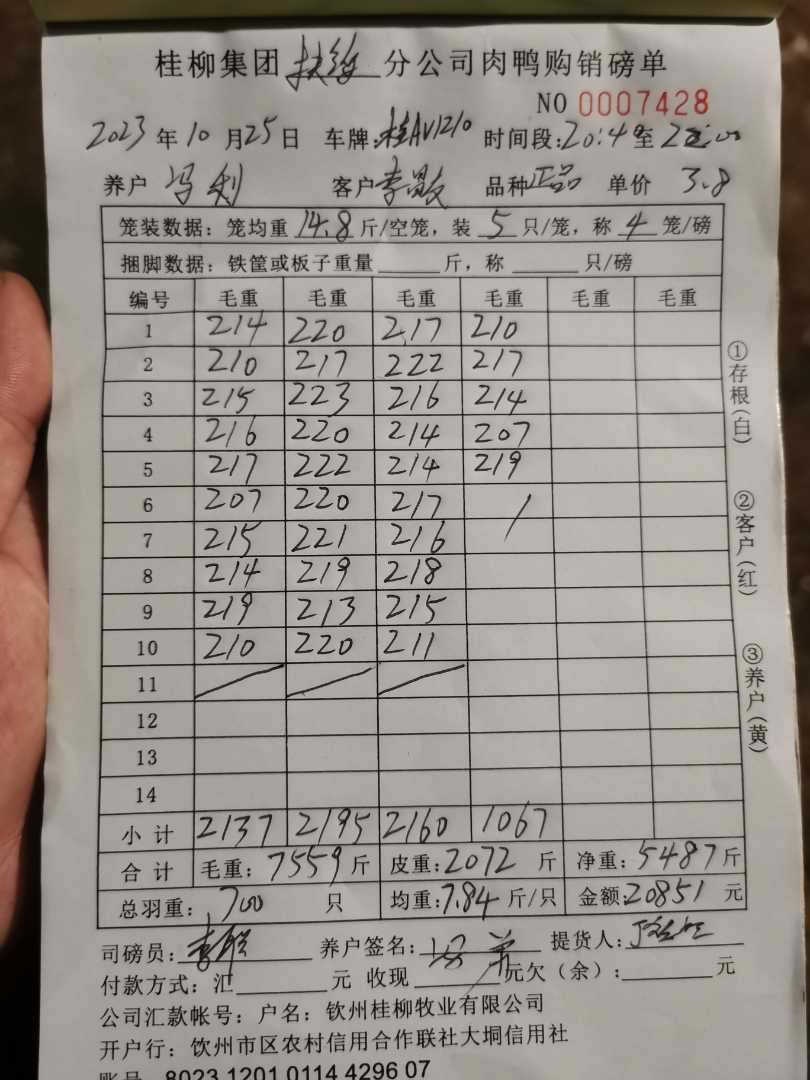 桂柳集团扶绥分公司肉鸭购销磅单
NO 0007428
2023年10月25日 车牌:桂AV1210 时间段:20:4 至
养户 冯利 客户 李 品种 正品 单价 3.8
笼装数据: 笼均重 14.8 斤/空笼, 装 5 只/笼, 称 4 笼/磅
捆脚数据: 铁筐或板子重量 斤, 称 只/磅
编号 毛重 毛重 毛重 毛重 毛重 毛重
1 214 220 217 210
2 210 217 222 217
3 215 223 216 214
4 216 220 214 207
5 217 222 214 219
6 207 220 217 /
7 215 221 216
8 214 219 218
9 219 213 215
10 210 220 211
11 / / /
12
13
14
小计 2137 2195 2160 1067
合计 毛重: 7559 斤 皮重: 2072 斤 净重: 5487 斤
总羽重: 700 只 均重: 7.84 斤/只 金额: 20851 元
司磅员: 李 养户签名: 冯 提货人:
付款方式: 汇 元 收现 元 欠(余): 元
公司汇款帐号: 户名: 钦州桂柳牧业有限公司
开户行: 钦州市区农村信用合作联社大垌信用社
账号 8023 1201 0114 4296 07
①存根(白)
②客户(红)
③养户(黄)